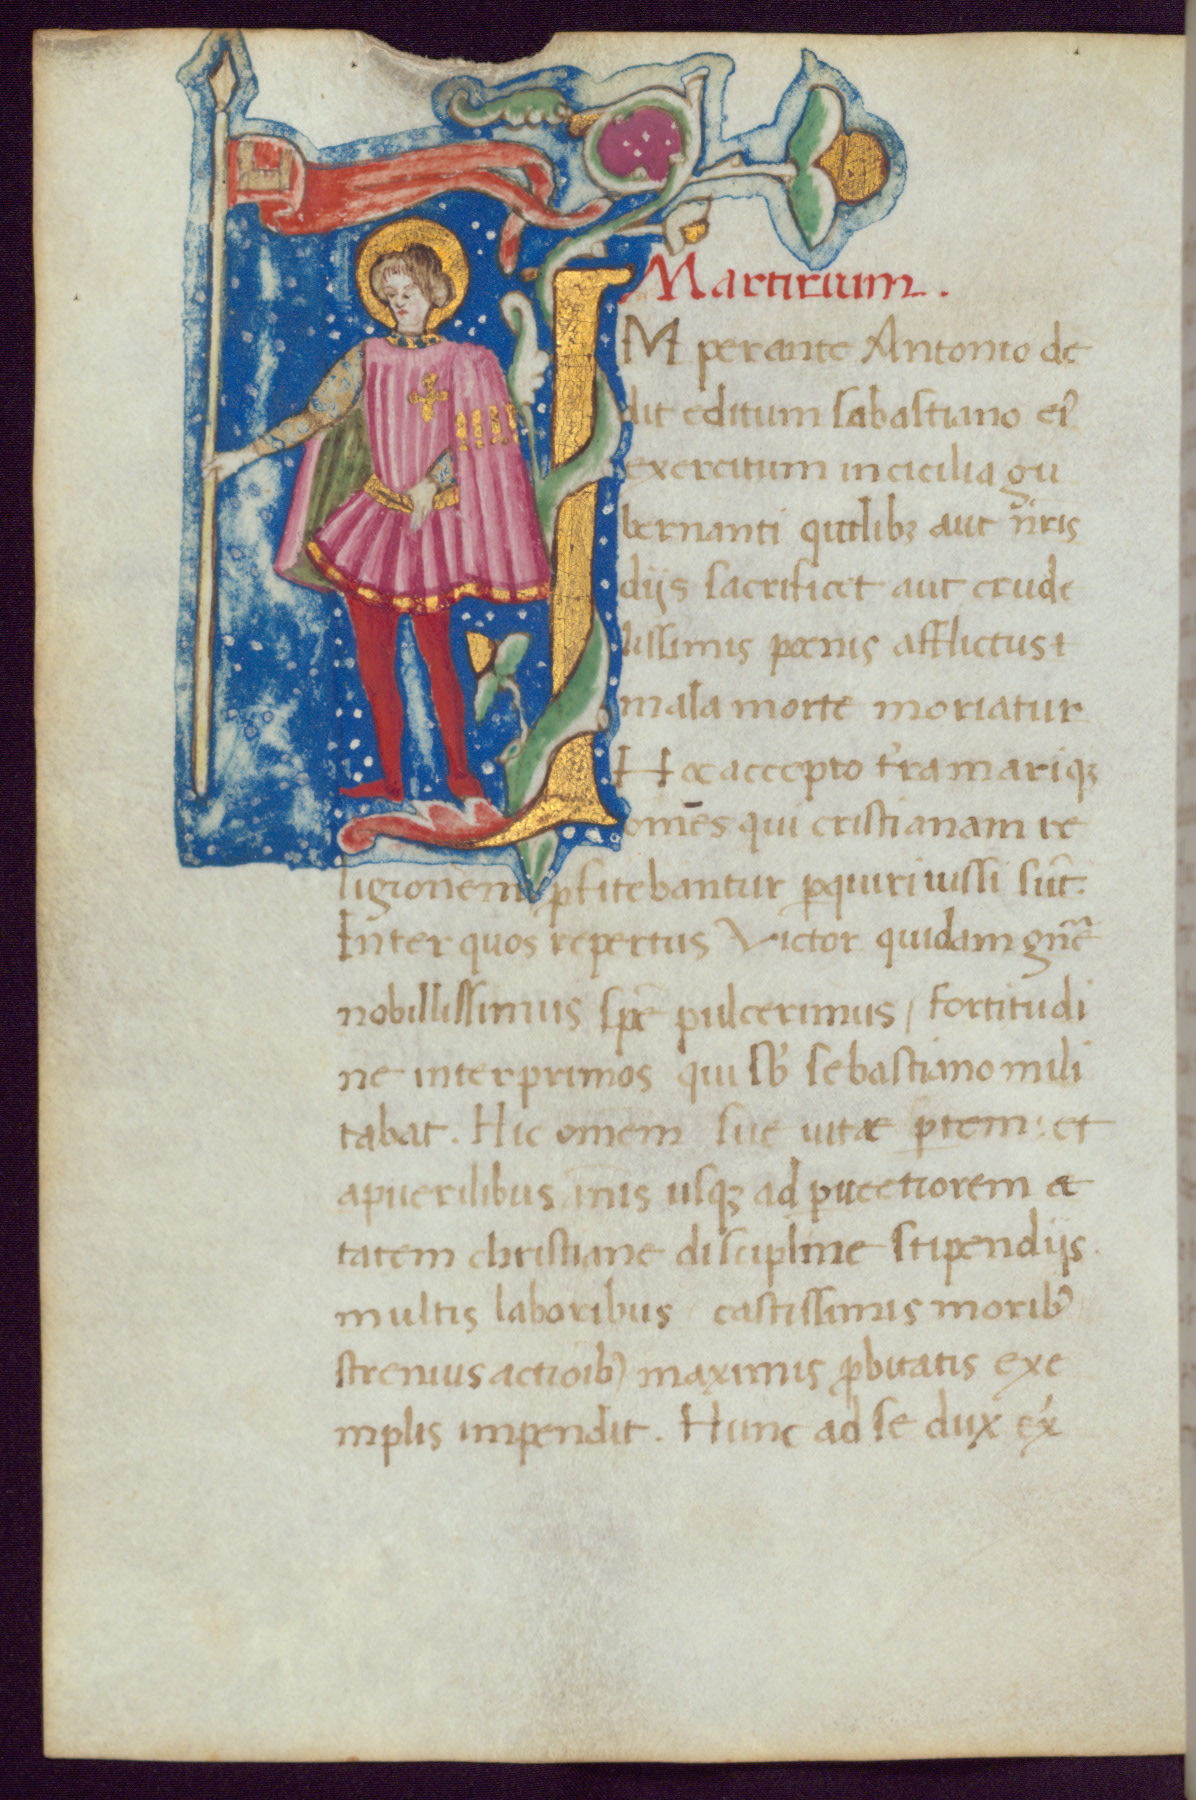 Martirium.
IMperante Antonio de
dit editum sabastiano ei᷒
exercitum in cicilia gu
bernanti qutlibꝫ aut nr̄is
diis sacrificet aut crude
lissimis poenis afflictus ⁊
mala morte moriatur
Hoc accepto t'ra mariqꝫ
omēs qui cristianam re
ligionem ꝓfitebantur ꝑquiri iussi sūt.
Inter quos repertus Victor quidam gn̄e
nobillissimus spē pulcerimus / fortitudi
ne inter primos qui sb' sebastiano mili
tabat. Hic omem sue uitæ ꝑtem : et
a puerilibus ānis usqꝫ ad ꝓuectiorem æ
tatem christiane discipline stipendijs.
multis laboribus castissimis morib᷒
strenius actioib᷒ maximis ꝓbitatis exe
mplis impendit. Hunc ad se dux ex̄